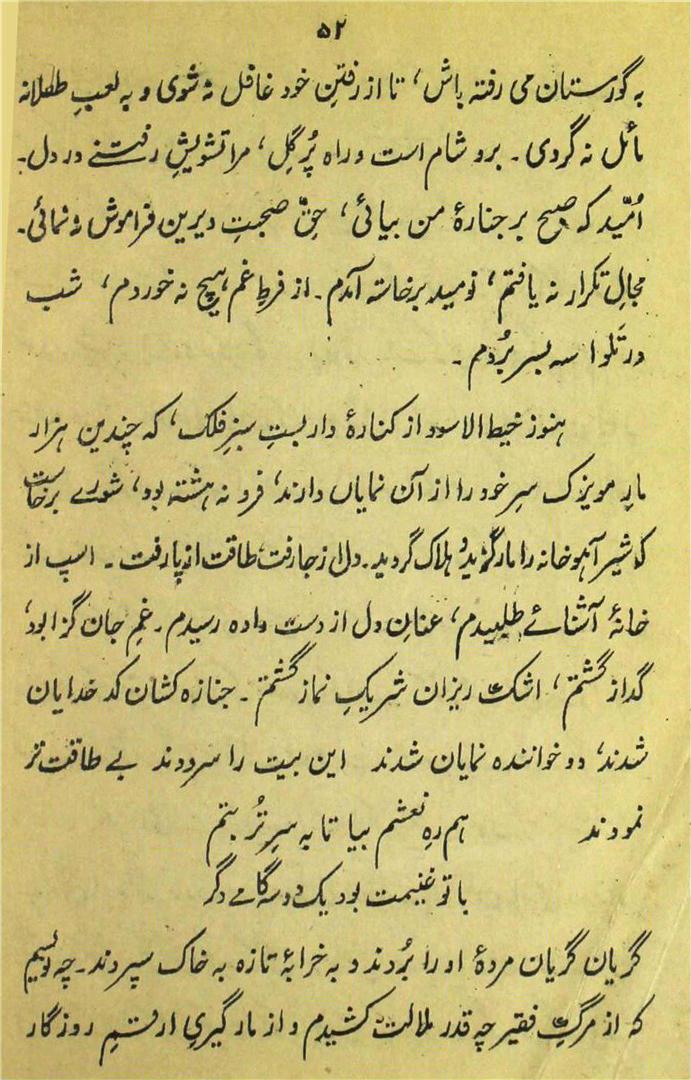 ۵۲
بہ گورستان می رفتہ باش، تا از رفتنِ خود غافل نہ شوی و بہ لعبِ طفلانہ
مائل نہ گردی۔ برو شام است و راہ پُر گِل، مرا تشویشِ رفتنے در دل۔
اُمّید کہ صبح بر جنازۂ من بیائی، حقِّ صحبتِ دیرین فراموش نہ نمائی۔
مجالِ تکرار نہ یافتم، نومید برخاستہ آمدم۔ از فرطِ غم ہیچ نہ خوردم، شب
در تَلواسہ بسر بُردم۔
ہنوز خیط الاسود از کنارۂ داربستِ سبزِ فلک، کہ چندین ہزار
مارِ مویزک سرِ خود را از آن نمایاں دارند، فرو نہ ہشتہ بود، شورے برخاست
کہ شیر آہو خانہ را مار گزید و ہلاک گردید۔ دل از جا رفت، طاقت از پا رفت۔ اسپ از
خانۂ آشنائے طلبیدم، عنانِ دل از دست دادہ رسیدم۔ غمِ جان گزا بود،
گداز گشتم، اشک ریزان شریکِ نماز گشتم۔ جنازہ کشان کد خدایان
شدند، دو خوانندہ نمایان شدند این بیت را سرودند بے طاقت تر
نمودند ہم رہِ نعشم بیا تا بہ سرِ تُربتم
با تو غنیمت بود یک دو سہ گامے دگر
گریان گریان مردۂ او را بُردند و بہ خرابۂ تازہ بہ خاک سپردند۔ چہ نویسیم
کہ از مرگِ فقیر چہ قدر ملالت کشیدم و از مار گیریِ ارقمِ روزگار